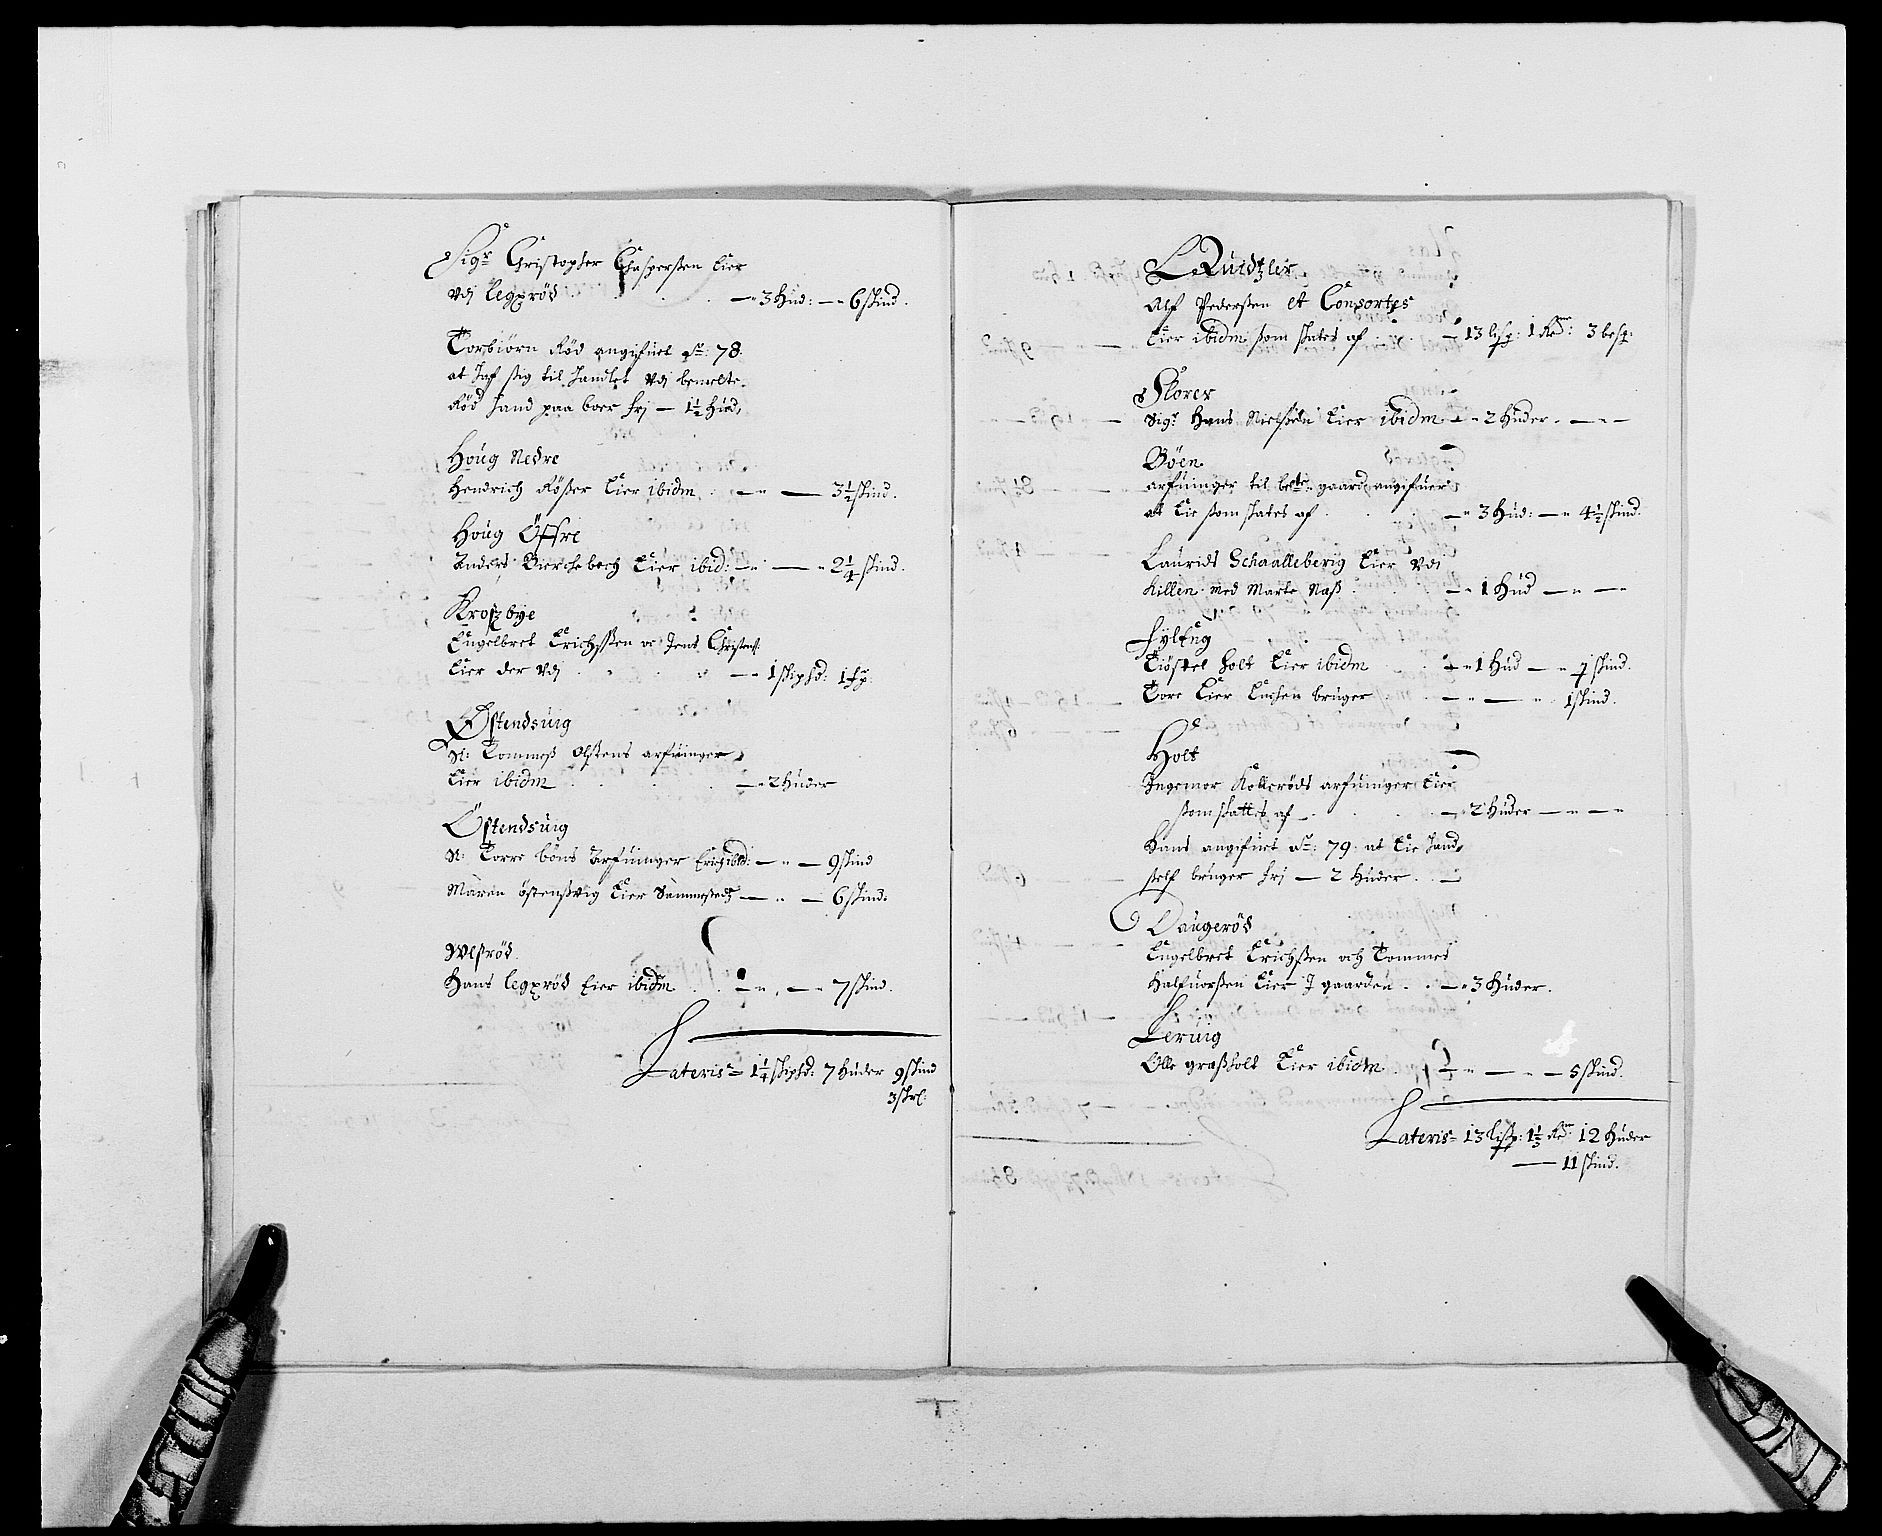 Sigr Christopher Chaspersen Eier
Vdj Legxrød — 3 Hud: — 6 skind.
Torbiørn Rød angifuet Ao: 78.
at haf sig til handlet Vdj bemelte
Rød hand paa boer frj — 1½ Hud,
Houg Nedre
Hendrich Rösser Eier ibidm — „ — 3½ skind.
Houg Öffre
Anders Bierchebech Eier ibid: — „ — „ 2¼ skind.
Krogbye
Engelbret Erichssen oc Jens Christens:
Eier der Vdj — 1 skippd: 1
Østendsuig
Sl: Tommeß Olssens arfuinger
Eier ibidm — „ 2 Huder
Östendsuig
Sl: Torre böns Arfuinger ibid: — „ — 9 skind
Maren östensvig Eier Sammesteds — „ — 6 skind.
Welsrød.
Hans Legxrød Eier ibidm — „ — „ 7 skind.
Lateris 1¼ skippd: 7 Huder 9 skind
3
Quidtzler
Alf Pedersen et Consortes
Eier ibidm som skates af — 13 lisp: 1 Rem: 3 besp:
Skorer
Sigr Hans Nielssen Eier ibidm — „ 2 Huder — „ —
Böen
arfuinger til bete gaard angifuer
at Eie som skates af — „ 3 Hud: — „ 4½ skind.
Laurids Schaalleberig Eier Vdj
Killen med Marte Naß — „ 1 Hud — „ —
Fylling
Tiöstel holt Eier ibidm — „ 1 Hud — „ skind.
Tore Eier bruger — „ — „ 1 skind.
Holt
Ingemor Kollerøds arfuinger Eier
som skattes af — „ 2 Huder — „ —
Hans angifuet Ao: 79: at Eie hand
self bruger frj — 2 Huder.
Daugerød
Engelbret Erichssen och Tommes
Halfuorssen Eier J gaarden — „ 3 Huder.
Leruig
Olle grassholt Eier ibidm — „ — „ — 5 skind.
Lateris 13 lisp: 1⅓ Rem: 12 Huder
— 11 skind.